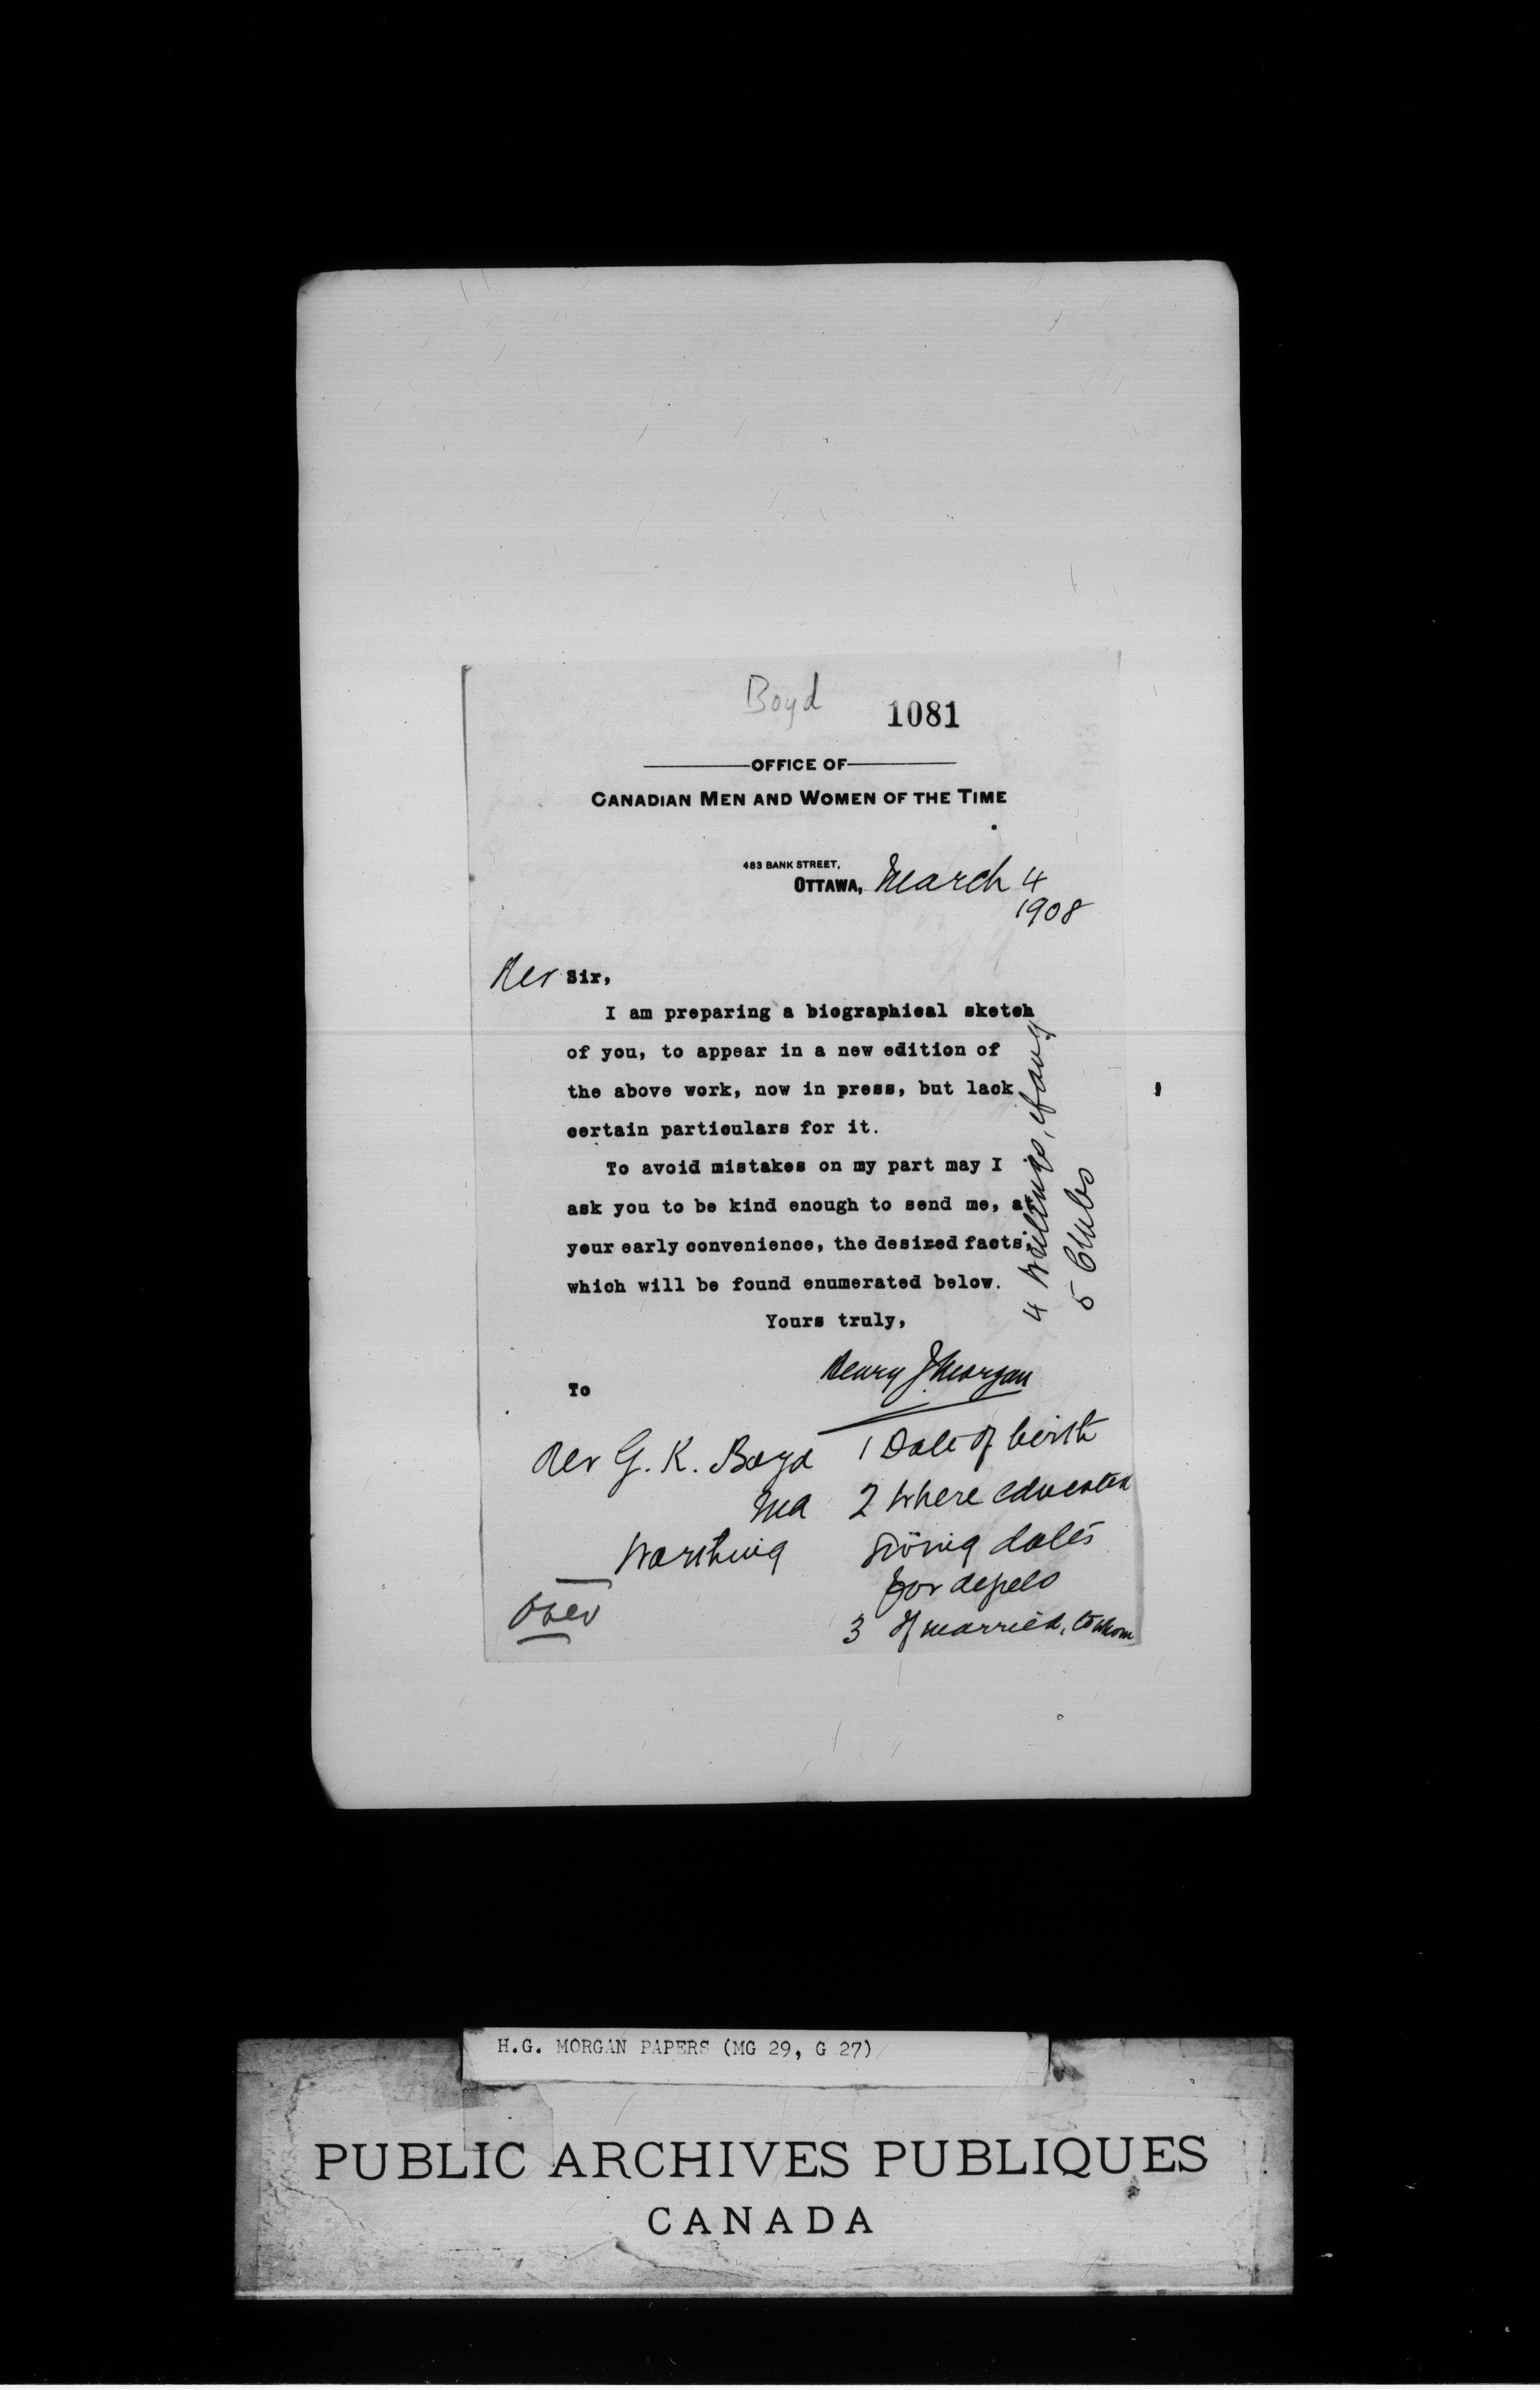 Boyd
1081
OFFICE OF
CANADIAN MEN AND WOMEN OF THE TIME
483 BANK STREET,
OTTAWA, March 4
1908
Rev Sir,
I am preparing a biographical sketch
of you, to appear in a new edition of
the above work, now in press, but lack
certain particulars for it.
To avoid mistakes on my part may I
ask you to be kind enough to send me, at
your early convenience, the desired facts,
which will be found enumerated below.
Yours truly,
Henry J Morgan
To
Rev G. K. Boyd
MA
1 Date of birth
2 Where educated
giving dates
for degrees
3 If married, to whom
4 Writings, if any
5 Clubs
Over
H.G. MORGAN PAPERS (MG 29, G 27)
PUBLIC ARCHIVES PUBLIQUES
CANADA